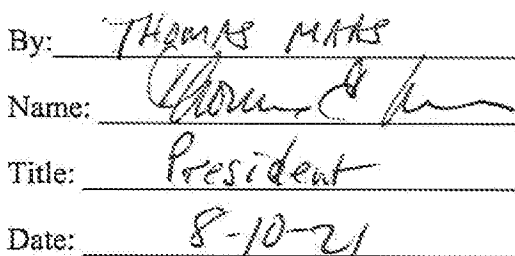 By: THOMAS MAAS
Name:
Title: President
Date: 8-10-21